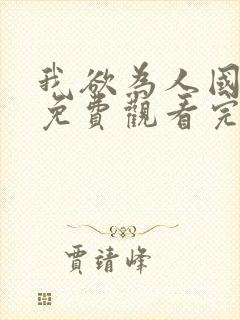 我欲為人國
免費觀看完
賈靖峰